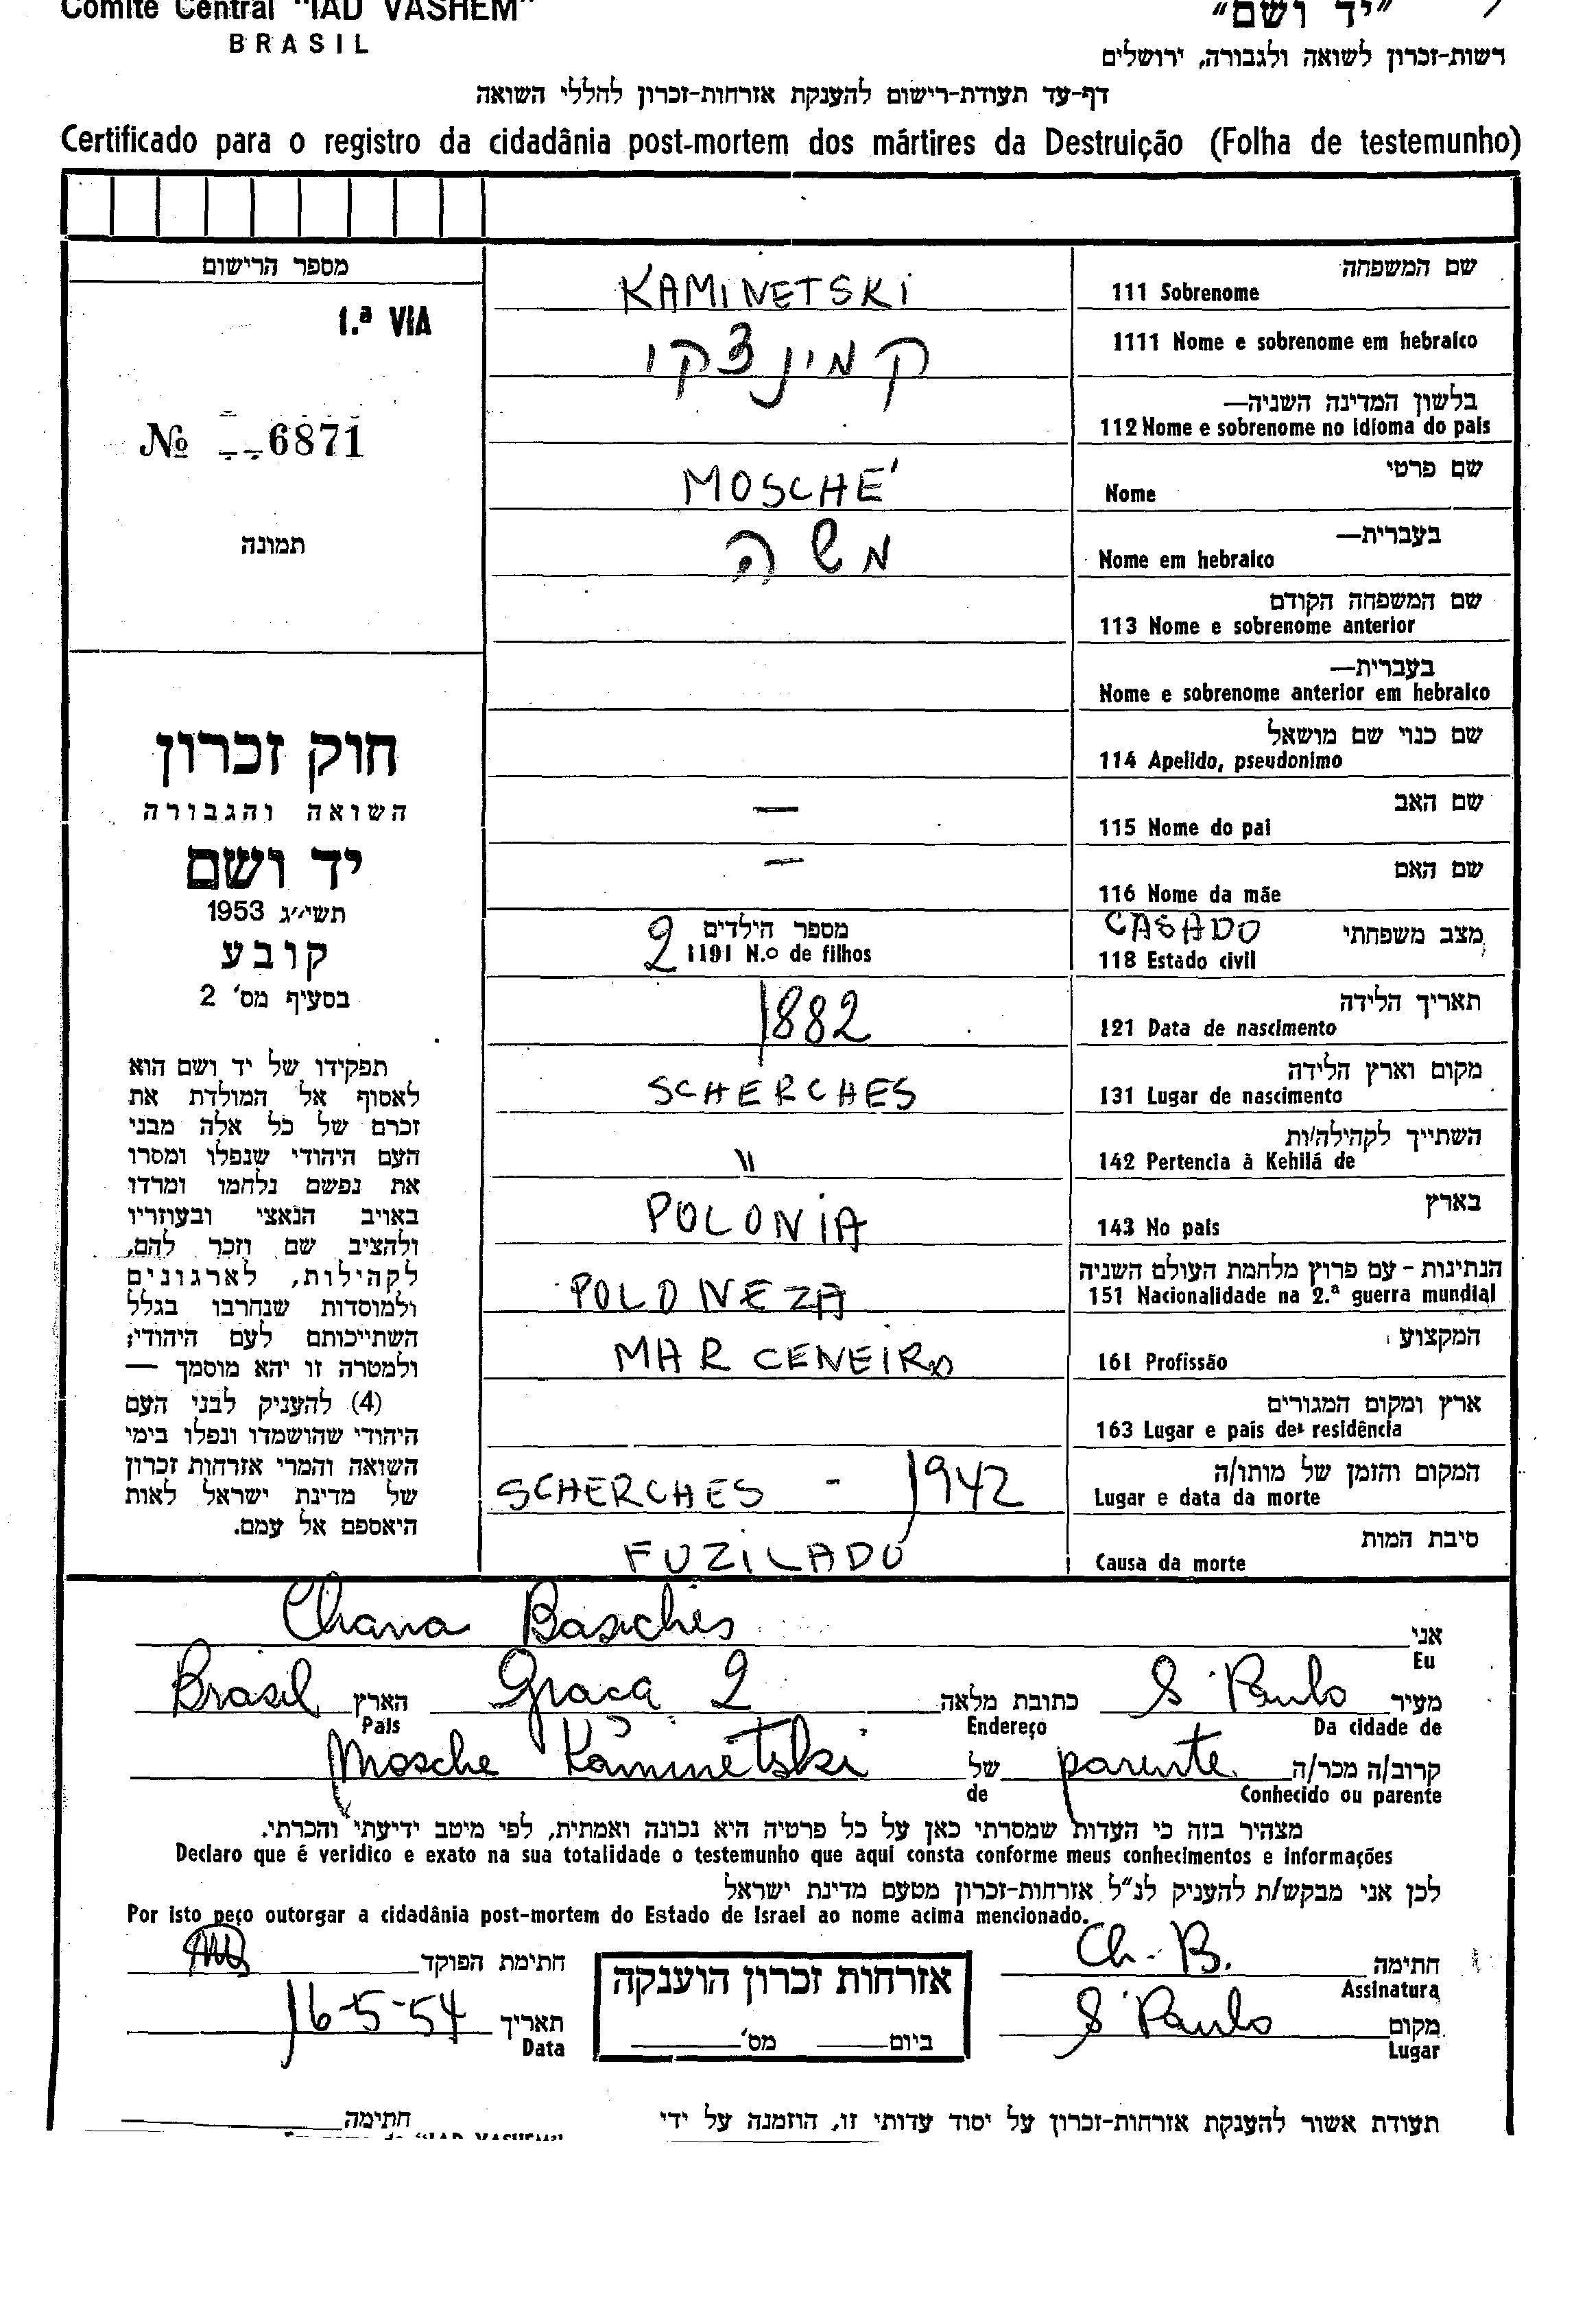 Comité Central "IAD VASHEM"
BRASIL
"יד ושם"
רשות-זכרון לשואה ולגבורה, ירושלים
דף-עד תעודת-רישום להענקת אזרחות-זכרון לחללי השואה
Certificado para o registro da cidadânia post-mortem dos mártires da Destruição (Folha de testemunho)
מספר הרישום
1.ª VIA
№ 6871
תמונה
חוק זכרון
השואה והגבורה
יד ושם
תשי״ג 1953
קובע
בסעיף מס' 2
תפקידו של יד ושם הוא
לאסוף אל המולדת את
זכרם של כל אלה מבני
העם היהודי שנפלו ומסרו
את נפשם נלחמו ומרדו
באויב הנאצי ובעוזריו
ולהציב שם וזכר להם,
לקהילות, לארגונים
ולמוסדות שנחרבו בגלל
השתייכותם לעם היהודי;
ולמטרה זו יהא מוסמך —
(4) להעניק לבני העם
היהודי שהושמדו ונפלו בימי
השואה והמרי אזרחות זכרון
של מדינת ישראל לאות
היאספם אל עמם.
שם המשפחה
111 Sobrenome KAMINETSKI
1111 Nome e sobrenome em hebraico קמינצקי
בלשון המדינה השניה—
112 Nome e sobrenome no idioma do pais
שם פרטי
Nome MOSCHÉ
בעברית—
Nome em hebraico משה
שם המשפחה הקודם
113 Nome e sobrenome anterior
בעברית—
Nome e sobrenome anterior em hebraico
שם כנוי שם מושאל
114 Apelido, pseudonimo
שם האב
115 Nome do pai —
שם האם
116 Nome da mãe —
מצב משפחתי
118 Estado civil CASADO
מספר הילדים
1191 N.o de filhos 2
תאריך הלידה
121 Data de nascimento 1882
מקום וארץ הלידה
131 Lugar de nascimento SCHERCHES
השתייך לקהילה/ות
142 Pertencia à Kehilá de "
בארץ
143 No pais POLONIA
הנתינות - עם פרוץ מלחמת העולם השניה
151 Nacionalidade na 2.ª guerra mundial POLONEZA
המקצוע
161 Profissão MARCENEIRO
ארץ ומקום המגורים
163 Lugar e pais de residência
המקום והזמן של מותו/ה
Lugar e data da morte SCHERCHES - 1942
סיבת המות
Causa da morte FUZILADO
אני
Eu Chana Basiches
מעיר S. Paulo כתובת מלאה Graça 2 הארץ Brasil
Da cidade de Endereço Pais
קרוב/ה מכר/ה parente של Mosche Kaminetski
Conhecido ou parente de
מצהיר בזה כי העדות שמסרתי כאן על כל פרטיה היא נכונה ואמתית, לפי מיטב ידיעתי והכרתי.
Declaro que é veridico e exato na sua totalidade o testemunho que aqui consta conforme meus conhecimentos e informações
לכן אני מבקש/ת להעניק לנ"ל אזרחות-זכרון מטעם מדינת ישראל
Por isto peço outorgar a cidadânia post-mortem do Estado de Israel ao nome acima mencionado.
חתימה Ch. B.
Assinatura
מקום S. Paulo
Lugar
אזרחות זכרון הוענקה
ביום מס'
חתימת הפוקד
תאריך 16-5-54
Data
תעודת אשור להענקת אזרחות-זכרון על יסוד עדותי זו, הוזמנה על ידי
חתימה
"IAD VASHEM"